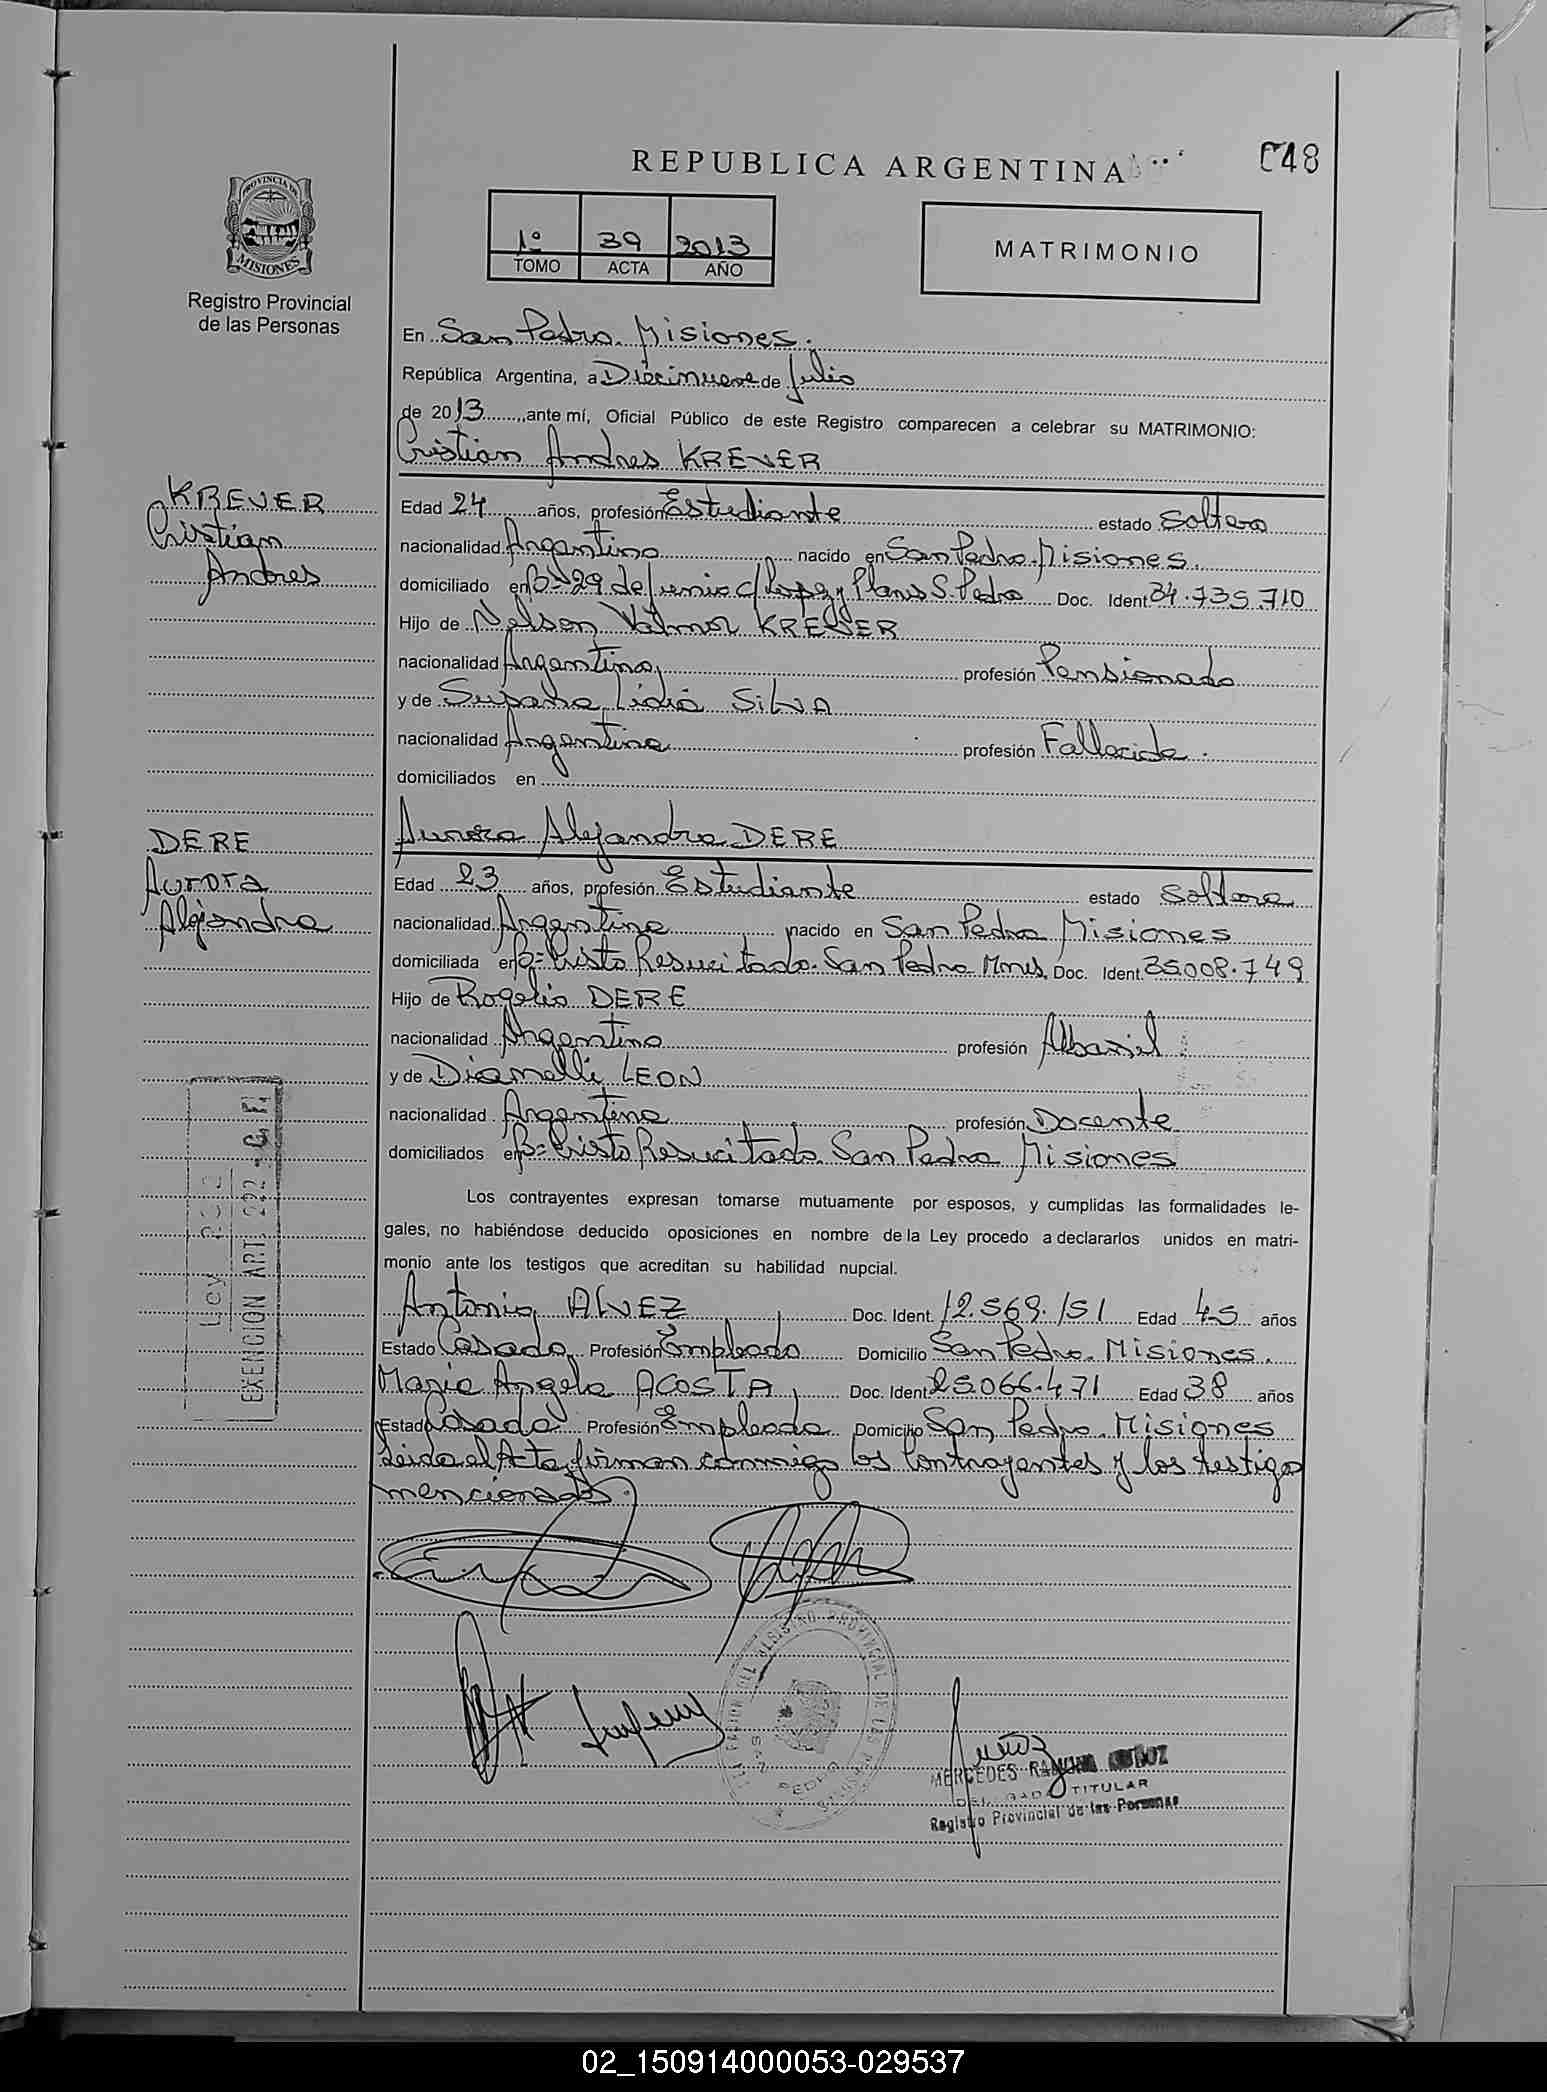 REPUBLICA ARGENTINA
C48
PROVINCIA DE
MISIONES
Registro Provincial
de las Personas
1º 39 2013
TOMO ACTA AÑO
MATRIMONIO
En San Pedro. Misiones.
República Argentina, a Diecinueve de Julio
de 2013 ante mí, Oficial Público de este Registro comparecen a celebrar su MATRIMONIO:
Cristian Andres KREVER
KREVER
Cristian
Andres
Edad 24 años, profesión Estudiante estado Soltero
nacionalidad Argentino nacido en San Pedro. Misiones.
domiciliado en Bº 29 de Junio c/ Lopez y Planes S. Pedro Doc. Ident. 34.735.710
Hijo de Nelson Valmor KREVER
nacionalidad Argentino profesión Pensionado
y de Susana Lidia SILVA
nacionalidad Argentina profesión Fallecida.
domiciliados en
Aurora Alejandra DERE
DERE
Aurora
Alejandra
Edad 23 años, profesión Estudiante estado Soltera
nacionalidad Argentina nacido en San Pedro Misiones
domiciliada en Bº Cristo Resucitado. San Pedro Mnes. Doc. Ident. 35.008.749
Hijo de Rogelio DERE
nacionalidad Argentino profesión Albañil
y de Diamelli LEON
nacionalidad Argentina profesión Docente
domiciliados en Bº Cristo Resucitado. San Pedro Misiones
Los contrayentes expresan tomarse mutuamente por esposos, y cumplidas las formalidades le-
gales, no habiéndose deducido oposiciones en nombre de la Ley procedo a declararlos unidos en matri-
monio ante los testigos que acreditan su habilidad nupcial.
Antonio ALVEZ Doc. Ident. 12.569.151 Edad 45 años
Estado Casado Profesión Empleado Domicilio San Pedro. Misiones.
Maria Angela ACOSTA Doc. Ident. 25.066.471 Edad 38 años
Estado Casada Profesión Empleada Domicilio San Pedro. Misiones
Leida el Acta, firman conmigo los Contrayentes y los testigos
mencionados.
Ley
EXENCION ART. 292 - C. F.
DEL REGISTRO PROVINCIAL DE LAS PERSONAS
SAN PEDRO
Muñoz
MERCEDES RAMONA MUÑOZ
DELEGADA TITULAR
Registro Provincial de las Personas
02_150914000053-029537